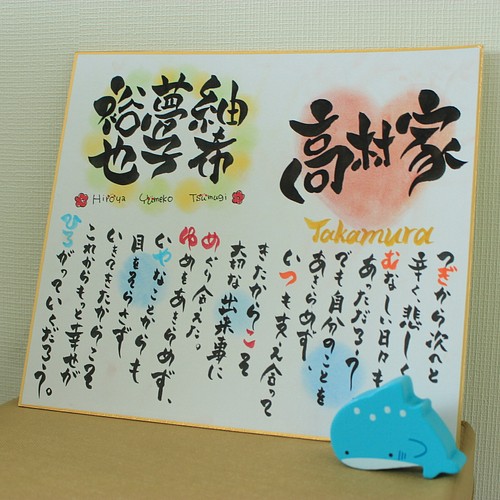 高村家
Takamura
紬希
夢子
裕也
Hiroya Yumeko Tsumugi
つぎから次へと
辛く、悲しく
むなしい日々も
あっただろう
でも自分のことを
あきらめず、
いつも支え合って
きたからこそ
大切な出来事に
めぐり合えた。
ゆめをあきらめず、
いやなことからも
目をそらさず
いきてきたからこそ
これからもっと幸せが
ひろがっていくだろう。